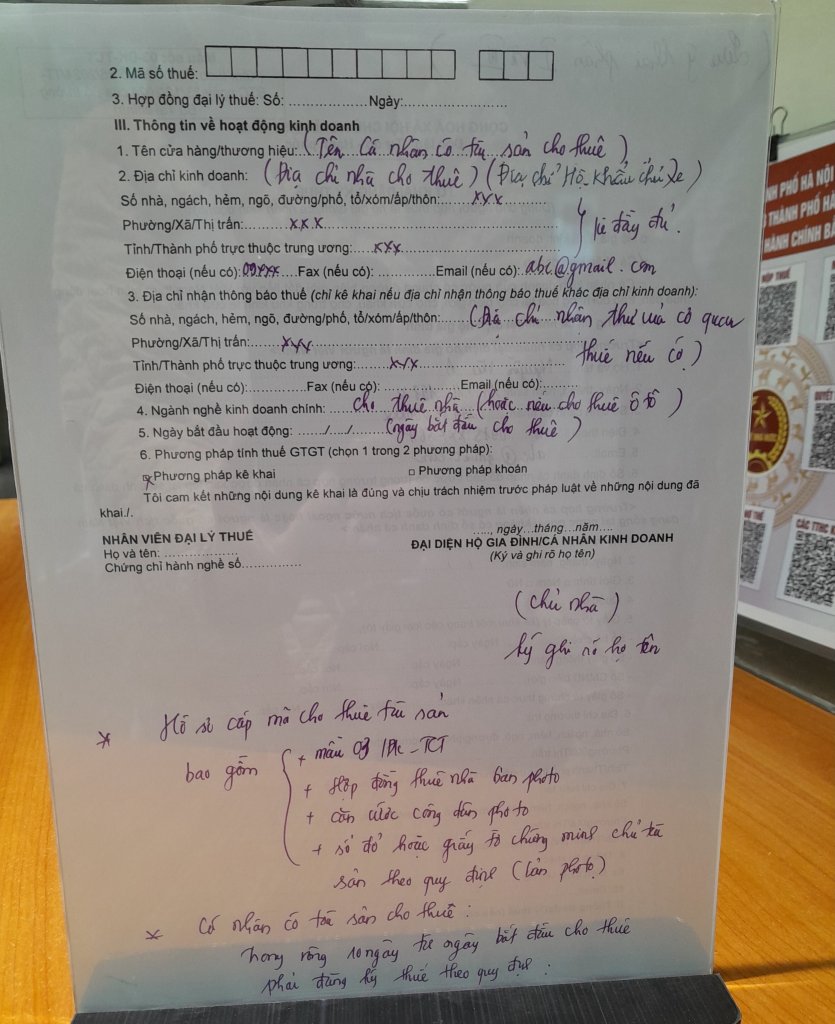 2. Mã số thuế:
3. Hợp đồng đại lý thuế: Số: ..................Ngày:........................
III. Thông tin về hoạt động kinh doanh
1. Tên cửa hàng/thương hiệu:..(Tên cá nhân có tài sản cho thuê)
2. Địa chỉ kinh doanh: (Địa chỉ nhà cho thuê) (Địa chỉ Hộ khẩu chủ xe)
Số nhà, ngách, hẻm, ngõ, đường/phố, tổ/xóm/ấp/thôn:........xxx..........
Phường/Xã/Thị trấn:..........xxx..........
kê đầy đủ.
Tỉnh/Thành phố trực thuộc trung ương:.....xxx..........
Điện thoại (nếu có):09xxx....Fax (nếu có): ..............Email (nếu có):.abc@gmail.com
3. Địa chỉ nhận thông báo thuế (chỉ kê khai nếu địa chỉ nhận thông báo thuế khác địa chỉ kinh doanh):
Số nhà, ngách, hẻm, ngõ, đường/phố, tổ/xóm/ấp/thôn:.......(Địa chỉ nhận thư của cơ quan
Phường/Xã/Thị trấn:..xxx..........
thuế nếu có)
Tỉnh/Thành phố trực thuộc trung ương:........xxx..........
Điện thoại (nếu có):.............Fax (nếu có): ..................Email (nếu có):.........
4. Ngành nghề kinh doanh chính: .....cho thuê nhà (hoặc nếu cho thuê ô tô)
5. Ngày bắt đầu hoạt động: ....../..../..... (ngày bắt đầu cho thuê)
6. Phương pháp tính thuế GTGT (chọn 1 trong 2 phương pháp):
x Phương pháp kê khai □ Phương pháp khoán
Tôi cam kết những nội dung kê khai là đúng và chịu trách nhiệm trước pháp luật về những nội dung đã
khai./.
....., ngày...tháng...năm....
NHÂN VIÊN ĐẠI LÝ THUẾ
ĐẠI DIỆN HỘ GIA ĐÌNH/CÁ NHÂN KINH DOANH
Họ và tên: ..................
(Ký và ghi rõ họ tên)
Chứng chỉ hành nghề số...............
(chủ nhà)
ký ghi rõ họ tên
* Hồ sơ cấp mã cho thuê tài sản
bao gồm
+ mẫu 03/ĐK-TCT
+ Hợp đồng thuê nhà bản photo
+ căn cước công dân photo
+ sổ đỏ hoặc giấy tờ chứng minh chủ tài
sản theo quy định (bản photo)
* Cá nhân có tài sản cho thuê:
trong vòng 10 ngày từ ngày bắt đầu cho thuê
phải đăng ký thuế theo quy định.
PHỐ HÀ NỘI
THÀNH PHỐ HÀ
HÀNH CHÍNH
NỘP THUẾ
QUYẾT
CÁC TTHC